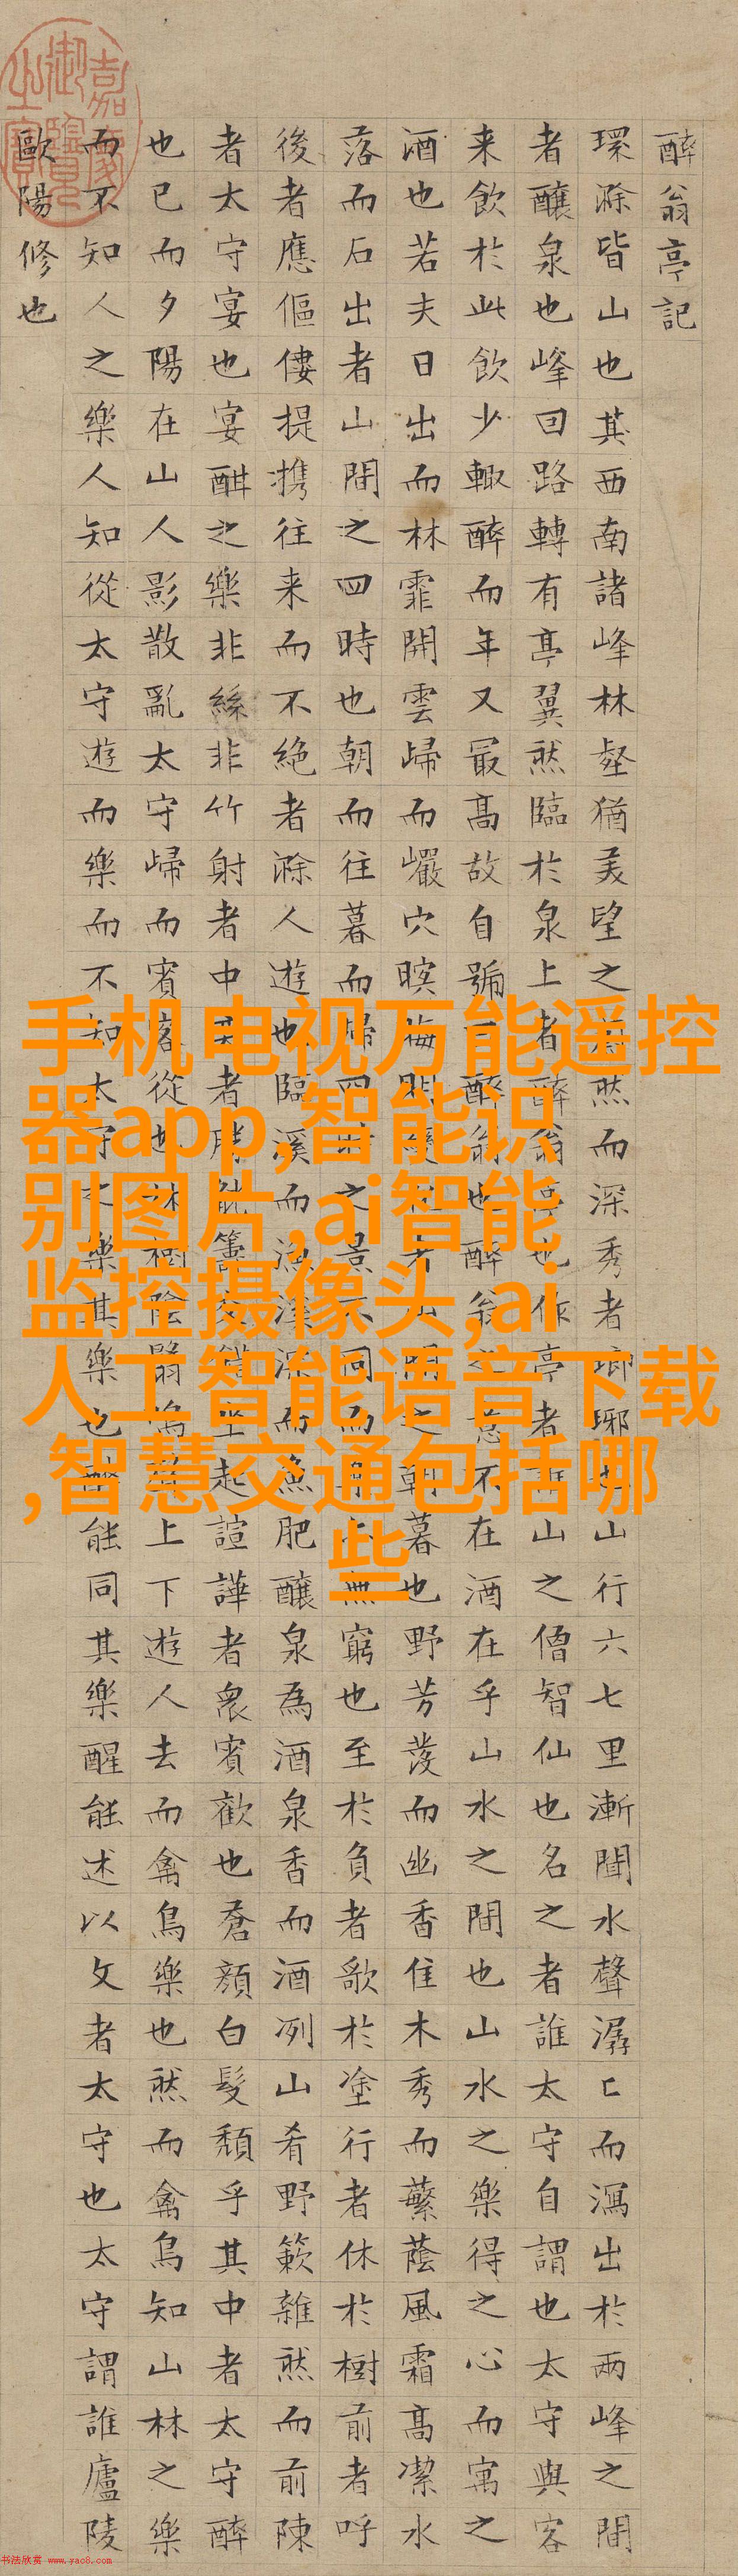 醉翁亭記
環滁皆山也其西南諸峰林壑猶美望之蔚然而深秀者瑯琊也山行六七里漸聞水聲潺〻而瀉出於兩峰之間
者釀泉也峰回路轉有亭翼然臨於泉上者醉翁亭也作亭者誰山之僧智仙也名之者誰太守自謂也太守與客
来飲於此飲少輒醉而年又最高故自號曰醉翁也醉翁之意不在酒在乎山水之間也山水之樂得之心而寓之
酒也若夫日出而林霏開雲歸而巖穴暝晦明變化者山間之朝暮也野芳發而幽香佳木秀而蘩蔭風霜高潔水
落而石出者山間之四時也朝而往暮而歸四時之景不同而樂亦無窮也至於負者歌於塗行者休於樹前者呼
後者應傴僂提携往来而不絶者滁人遊也臨溪而漁溪深而魚肥釀泉為酒泉香而酒冽山肴野蔌雜然而前陳
者太守宴也宴酣之樂非絲非竹射者中弈者勝觥籌交錯坐起諠譁者衆賓歡也蒼顏白髮頹乎其中者太守醉
也已而夕陽在山人影散亂太守歸而賓客從也林樹陰翳鳴聲上下遊人去而禽鳥樂也然而禽鳥知山林之樂
而不知人之樂人知從太守遊而樂而不知太守之樂其樂也醉能同其樂醒能述以文者太守也太守謂誰廬陵
歐陽修也
嘉慶御覽之寶
手机电视万能遥控
器app,智能识
别图片,ai智能
监控摄像头,ai
人工智能语音下载
,智慧交通包括哪
些
书法欣赏 www.yac8.com